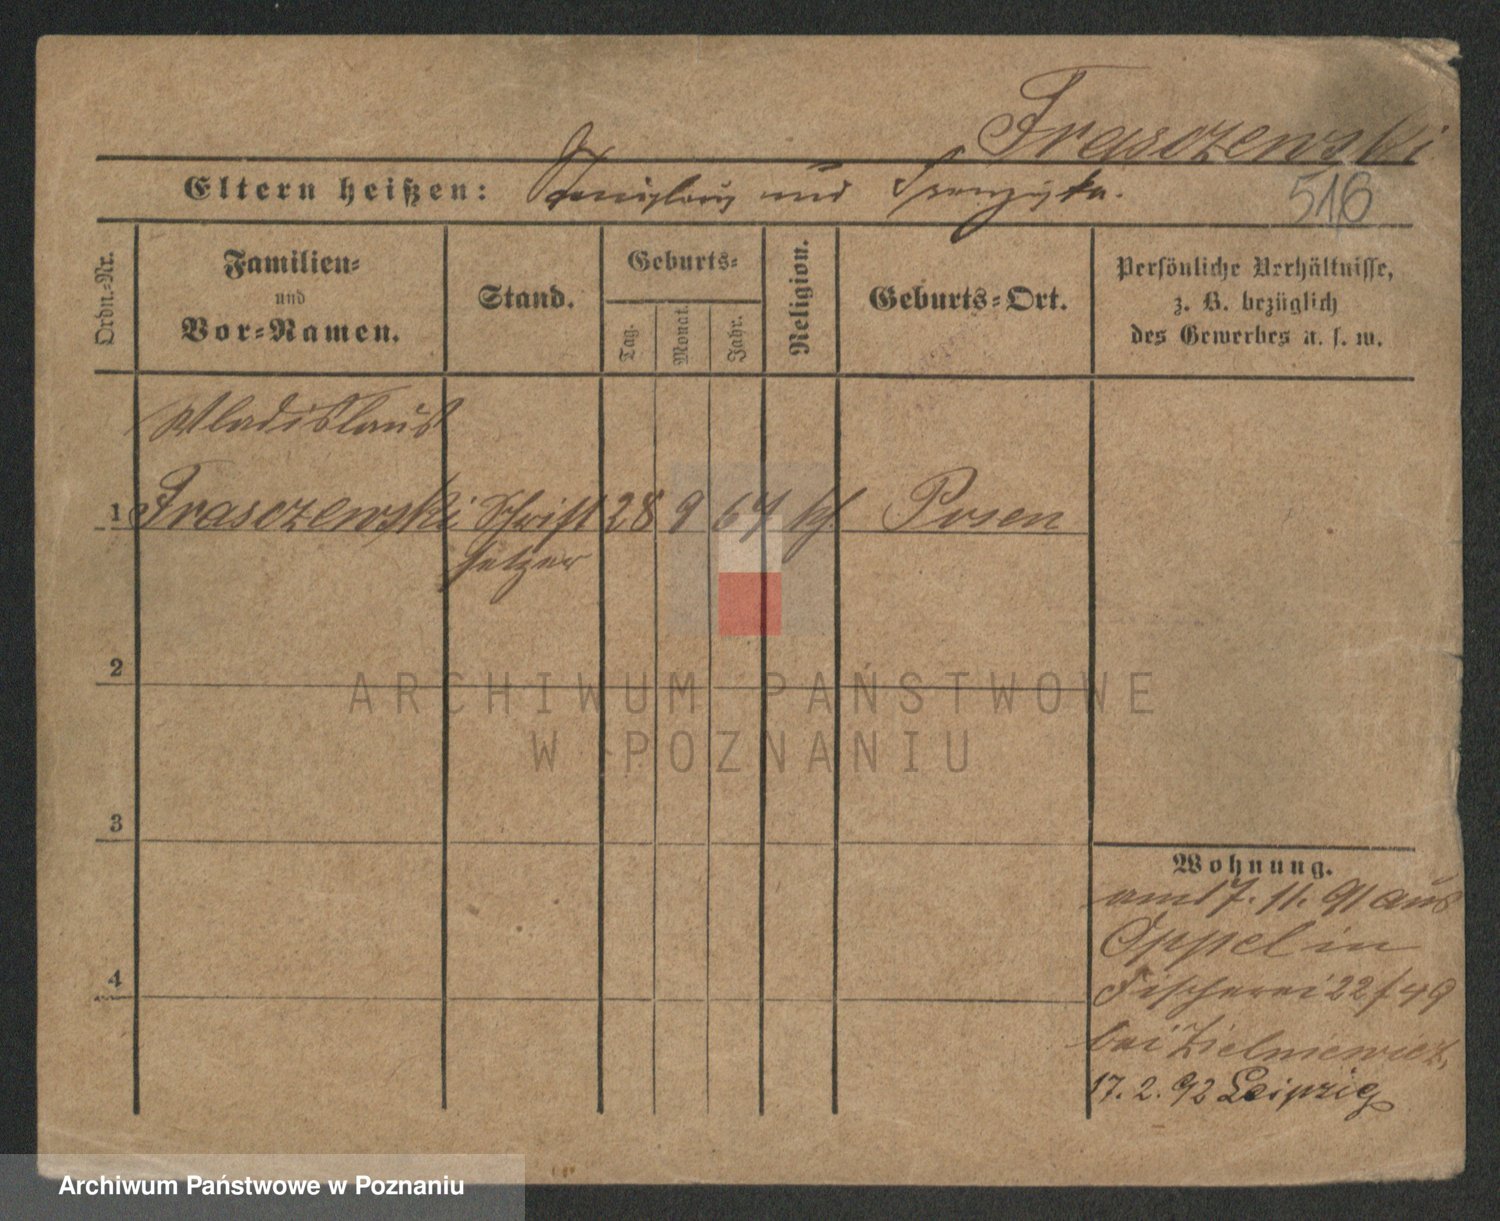 Frasczewski
Eltern heißen: Stanislaus und Franziska.
516
Ordn.-Nr.
Familien-
und
Vor-Namen.
Stand.
Geburts-
Tag.
Monat.
Jahr.
Religion.
Geburts-Ort.
Persönliche Verhältnisse,
z. B. bezüglich
des Gewerbes u. s. w.
Wladislaus
1 Frasczewski Schrift 28 9 67 kf Posen
setzer
2
ARCHIWUM PAŃSTWOWE
W POZNANIU
3
4
Wohnung.
am 17. 11. 91 aus
Oppeln in
Fischerei 22/49
bei Zielniewicz,
17. 2. 92 Leipzig
Archiwum Państwowe w Poznaniu